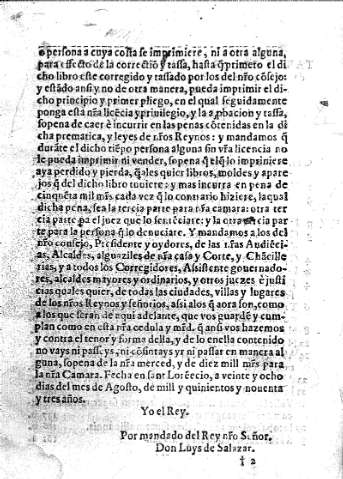 o persona a cuya costa se imprimiere, ni a otra alguna,
para effecto de la correctiõ y tassa, hasta q̃ primero el di
cho libro este corregido y tassado por los del nr̃o cõsejo:
y estãdo ansi y no de otra manera, pueda imprimir el di-
cho principio y primer pliego, en el qual seguidamente
ponga esta nr̃a licẽcia y priuilegio, y la aprbacion y tassa,
sopena de caer ẽ incurrir en las penas cõtenidas en la di
cha prematica, y leyes de nr̃os Reynos: y mandamos q̃
durãte el dicho tiẽpo persona alguna sin vr̃a licencia no
le pueda imprimir ni vender, sopena q̃ el q̃ lo imprimiere
aya perdido y pierda, q̃ales quier libros, moldes y apare
jos q̃ del dicho libro tuuiere: y mas incurra en pena de
cinquẽta mil mrs̃ cada vez q̃ lo contrario hiziere, la qual
dicha pena, sea la tercia parte para nr̃a camara: otra ter
cia parte pa el juez que lo sentẽciare: y la otra tercia par
te para la persona q̃ lo denũciare. Y mandamos a los del
nr̃o consejo, Presidente y oydores, de las nr̃as Audiẽci-
as, Alcaldes, alguaziles de nr̃a casa y Corte, y Chãcille
rias, y a todos los Corregidores, Assistente gouernado-
res, alcaldes mayores y ordinarios, y otros juezes ẽ justi
cias quales quier, de todas las ciudades, villas y lugares
de los nr̃os Reynos y señorios, asi a los q̃ aora son, como
a los que serãn de aqui adelante, que vos guardẽ y cum-
plan como en esta nr̃a cedula y mr̃d. q̃ ansi vos hazemos
y contra el tenor y forma della, y de lo en ella contenido
no vays ni passeys, ni cõsintays yr ni passar en manera al
guna, sopena de la nr̃a merced, y de diez mill mrs̃ para
la nr̃a Camara. Fecha en sant Lorẽcio, a veinte y ocho
dias del mes de Agosto, de mill y quinientos y nouenta
y tres años.
Yo el Rey.
Por mandado del Rey nr̃o Señor.
Don Luys de Salazar.
† 2